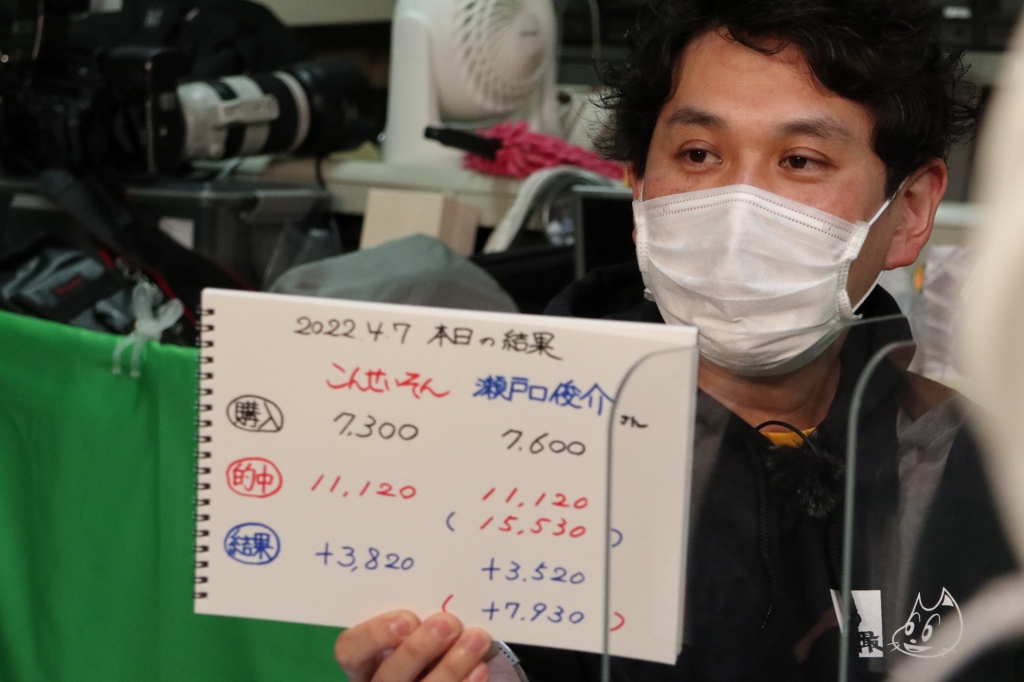 2022.4.7 本日の結果
こんせいそん 瀬戸口俊介さん
購入 7.300 7.600
的中 11,120 11,120
( 15,530 )
結果 +3,820 +3.520
( +7.930 )